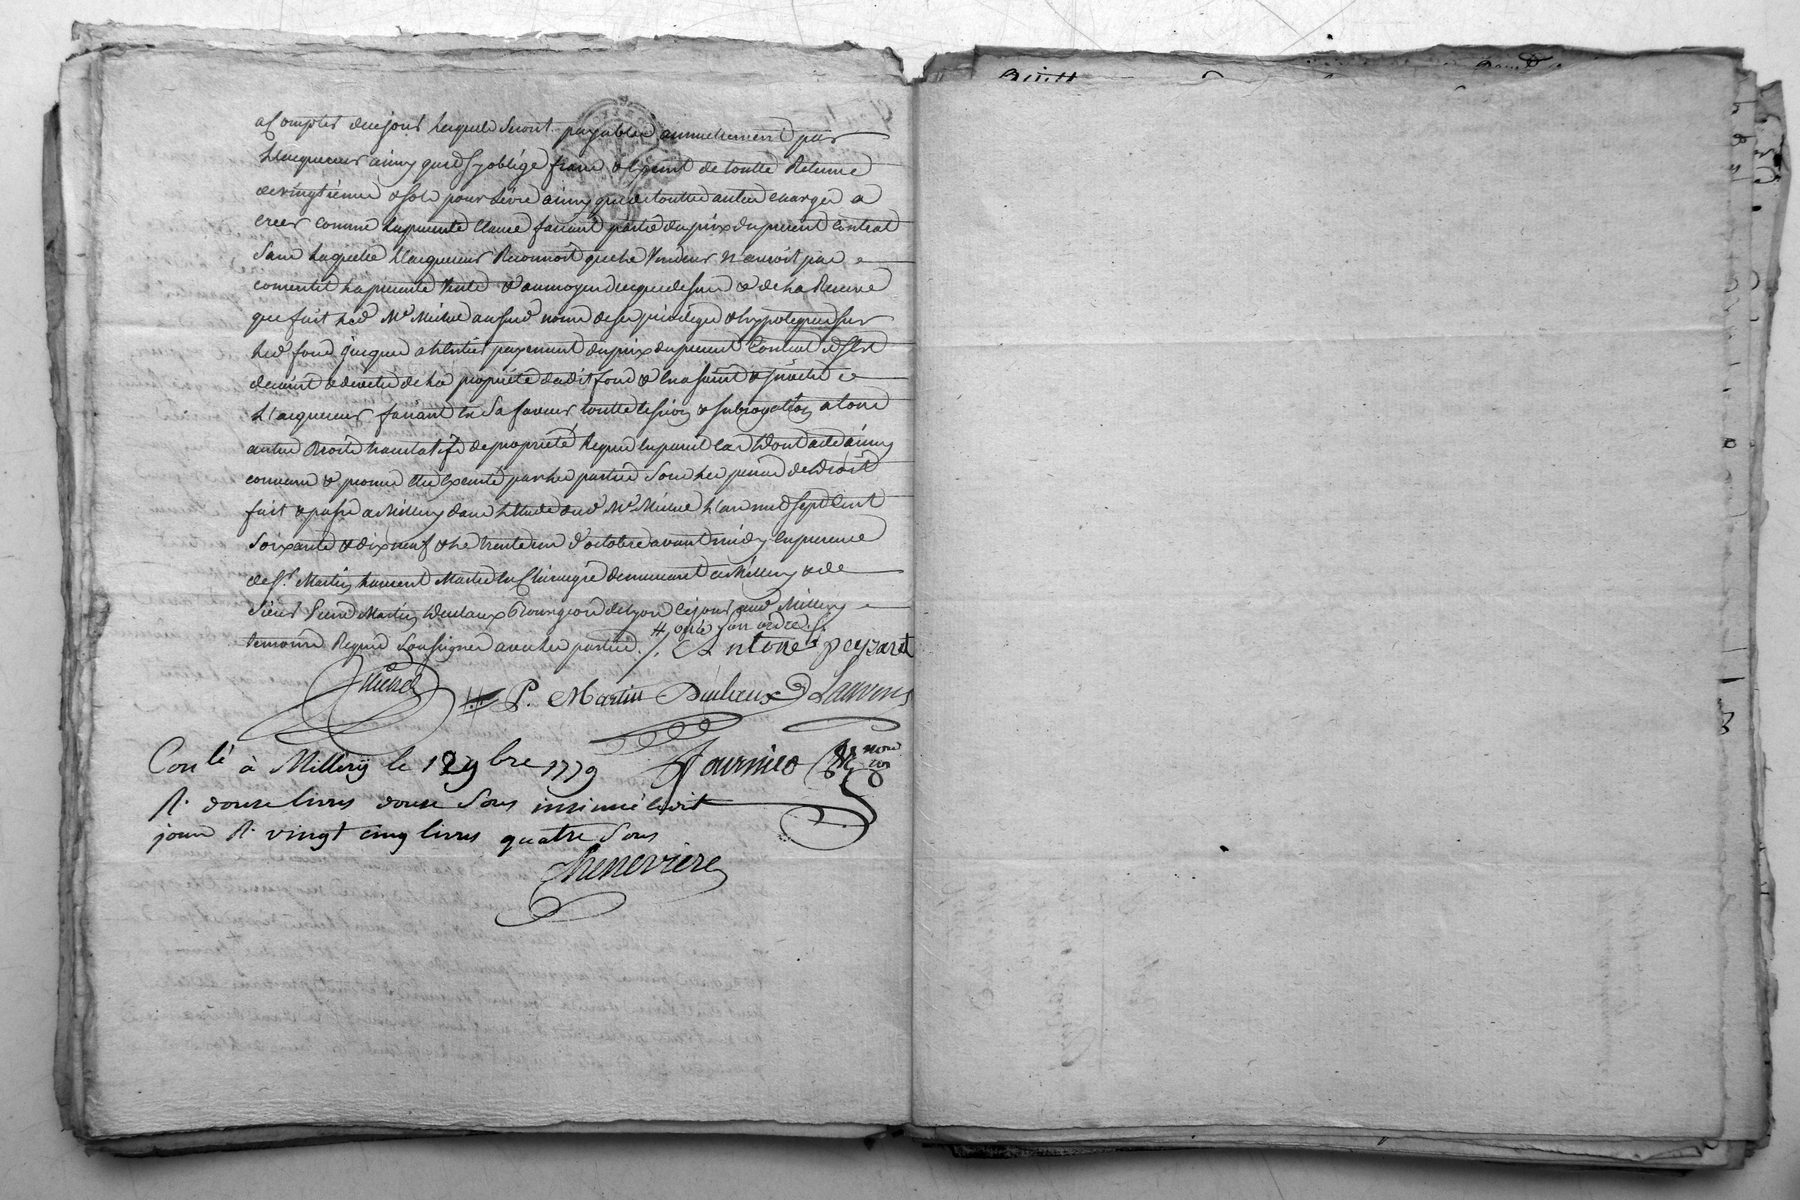 a Compter de ce jour lesquels seront payables annuellement par
l'acquereur ainsy qu'il s'y oblige franc & exempt de toutte Retenue
de vingtieme & sols pour livre ainsy que de toutte autre charge a
creer comme la presente Clause faisant partie du prix du present Contrat
Sans laquelle l'acquereur Reconnoit que le Vendeur n'auroit pas
consentit la presente Vente & au moyen de la Reserve
que fait led Me Michel aud nom de ses privilege & hypoteque sur
led fond jusques a l'entier payement du prix du present Contrat
de la propriété dudit fond & en a saisit &
L'acquereur faisant en Sa faveur toutte & subrogation a tous
autres Droits translatifs de propriété Requis en pareil cas dont acte ainsy
convenu & promis etre executé par les parties Sous les peines de Droit
fait & passé a Millery dans l'Etude dud Me Michel l'an mil sept Cent
Soixante & dix neuf & le trente un d'octobre avant midy en presence
de Sr Martin Laurent Maitre en Chirurgie demeurant a Millery & de
Sieur Pierre Martin Dulaux Bourgeois de Lyon ce jour aud Millery
temoins Requis Soussignes avec les parties. /. Antoine peyzaret
# ou à son ordre /.
Michel # P. Martin Dulaux Laurens
Conlé à Millery le 12 9bre 1779 Fournier
R. douze livres douze Sous insinué ledit
jour R. vingt cinq livres quatre Sous
Chenevière